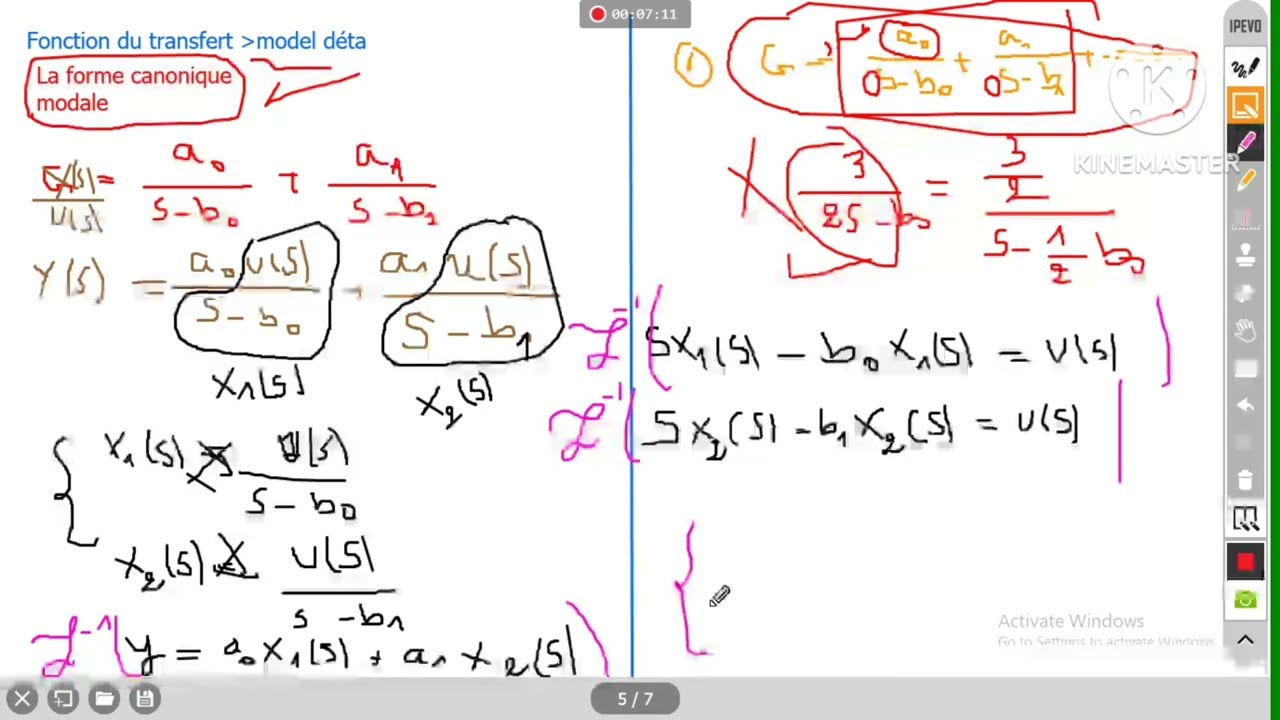 00:07:11
Fonction du transfert >model déta
La forme canonique
modale
Y(s)/U(s) = a₀/(s-b₀) + a₁/(s-b₁)
Y(s) = a₀ U(s)/(s-b₀) + a₁ U(s)/(s-b₁)
X₁(s) X₂(s)
X₁(s) = U(s)/(s-b₀)
X₂(s) = U(s)/(s-b₁)
ℒ⁻¹( y = a₀X₁(s) + a₁X₂(s) )
① G = a₀/(s-b₀) + a₁/(s-b₁) + ...
3/(2s-b₀) = (3/2)/(s-1/2 b₀)
ℒ⁻¹( SX₁(s) - b₀X₁(s) = U(s) )
ℒ⁻¹( SX₂(s) - b₁X₂(s) = U(s) |
{
K
KINEMASTER
IPEVO
Activate Windows
Go to Settings to activate Windows
5 / 7